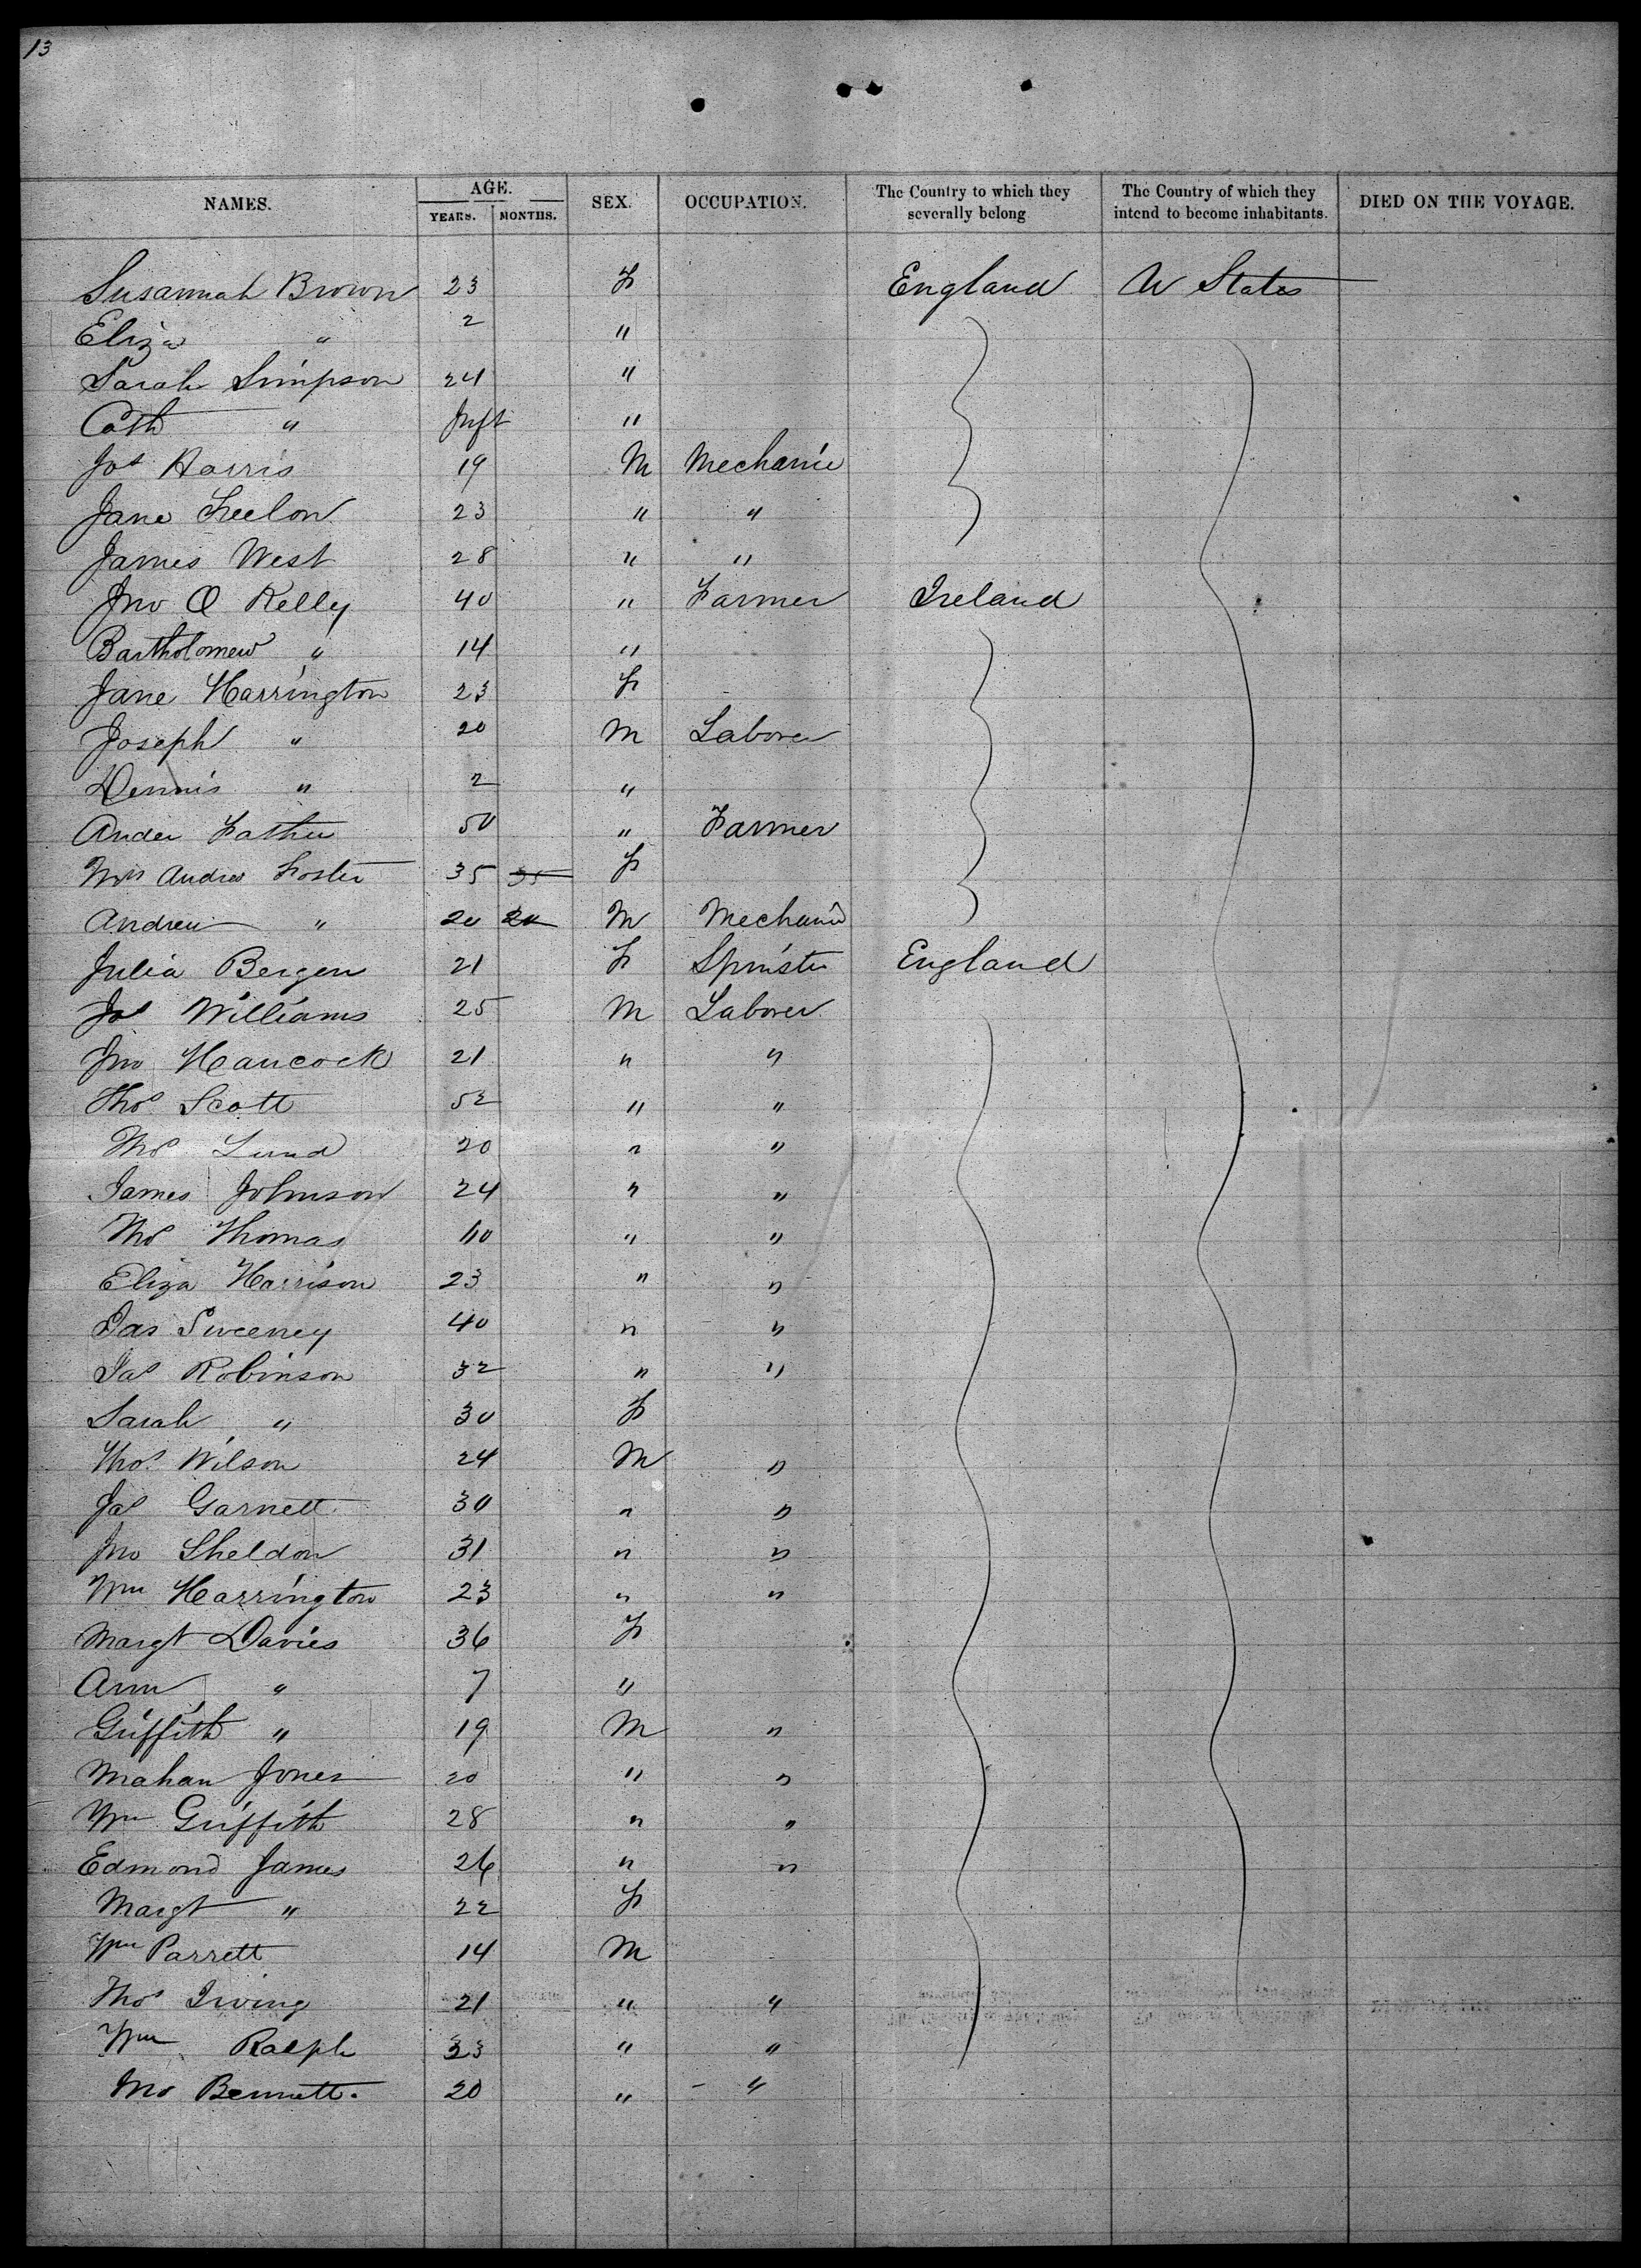 13
NAMES. AGE. YEARS. MONTHS. SEX. OCCUPATION. The Country to which they severally belong The Country of which they intend to become inhabitants. DIED ON THE VOYAGE.
Susannah Brown 23 F England U States
Eliza " 2 "
Sarah Simpson 24 "
Cath " Inft "
Jos Harris 19 M Mechanic
Jane 23 " "
James West 28 " "
Jno O Kelly 40 " Farmer Ireland
Bartholomew " 14 "
Jane Harrington 23 F
Joseph " 20 M Laborer
Dennis " 2 "
50 " Farmer
Mrs Andrew Foster 35 35 F
Andrew " 20 20 M Mechanic
Julia Bergen 21 F Spinster England
Jos Williams 25 M Laborer
Jno Hancock 21 " "
Thos Scott 52 " "
Thos Lund 20 " "
James Johnson 24 " "
Thos Thomas 40 " "
Eliza Harrison 23 " "
Jas Sweeney 40 " "
Jas Robinson 32 " "
Sarah " 30 F
Thos Wilson 24 M "
Jas Garnett 30 " "
Jno Sheldon 31 " "
Wm Harrington 23 " "
Margt Davies 36 F
Ann " 7 "
Griffith " 19 M "
Mahan Jones 20 " "
Wm Griffith 28 " "
Edmond James 26 " "
Margt " 22 F
Wm Parrett 14 M
Thos Irving 21 " "
Wm Ralph 33 " "
Jno Bennett. 20 " - "